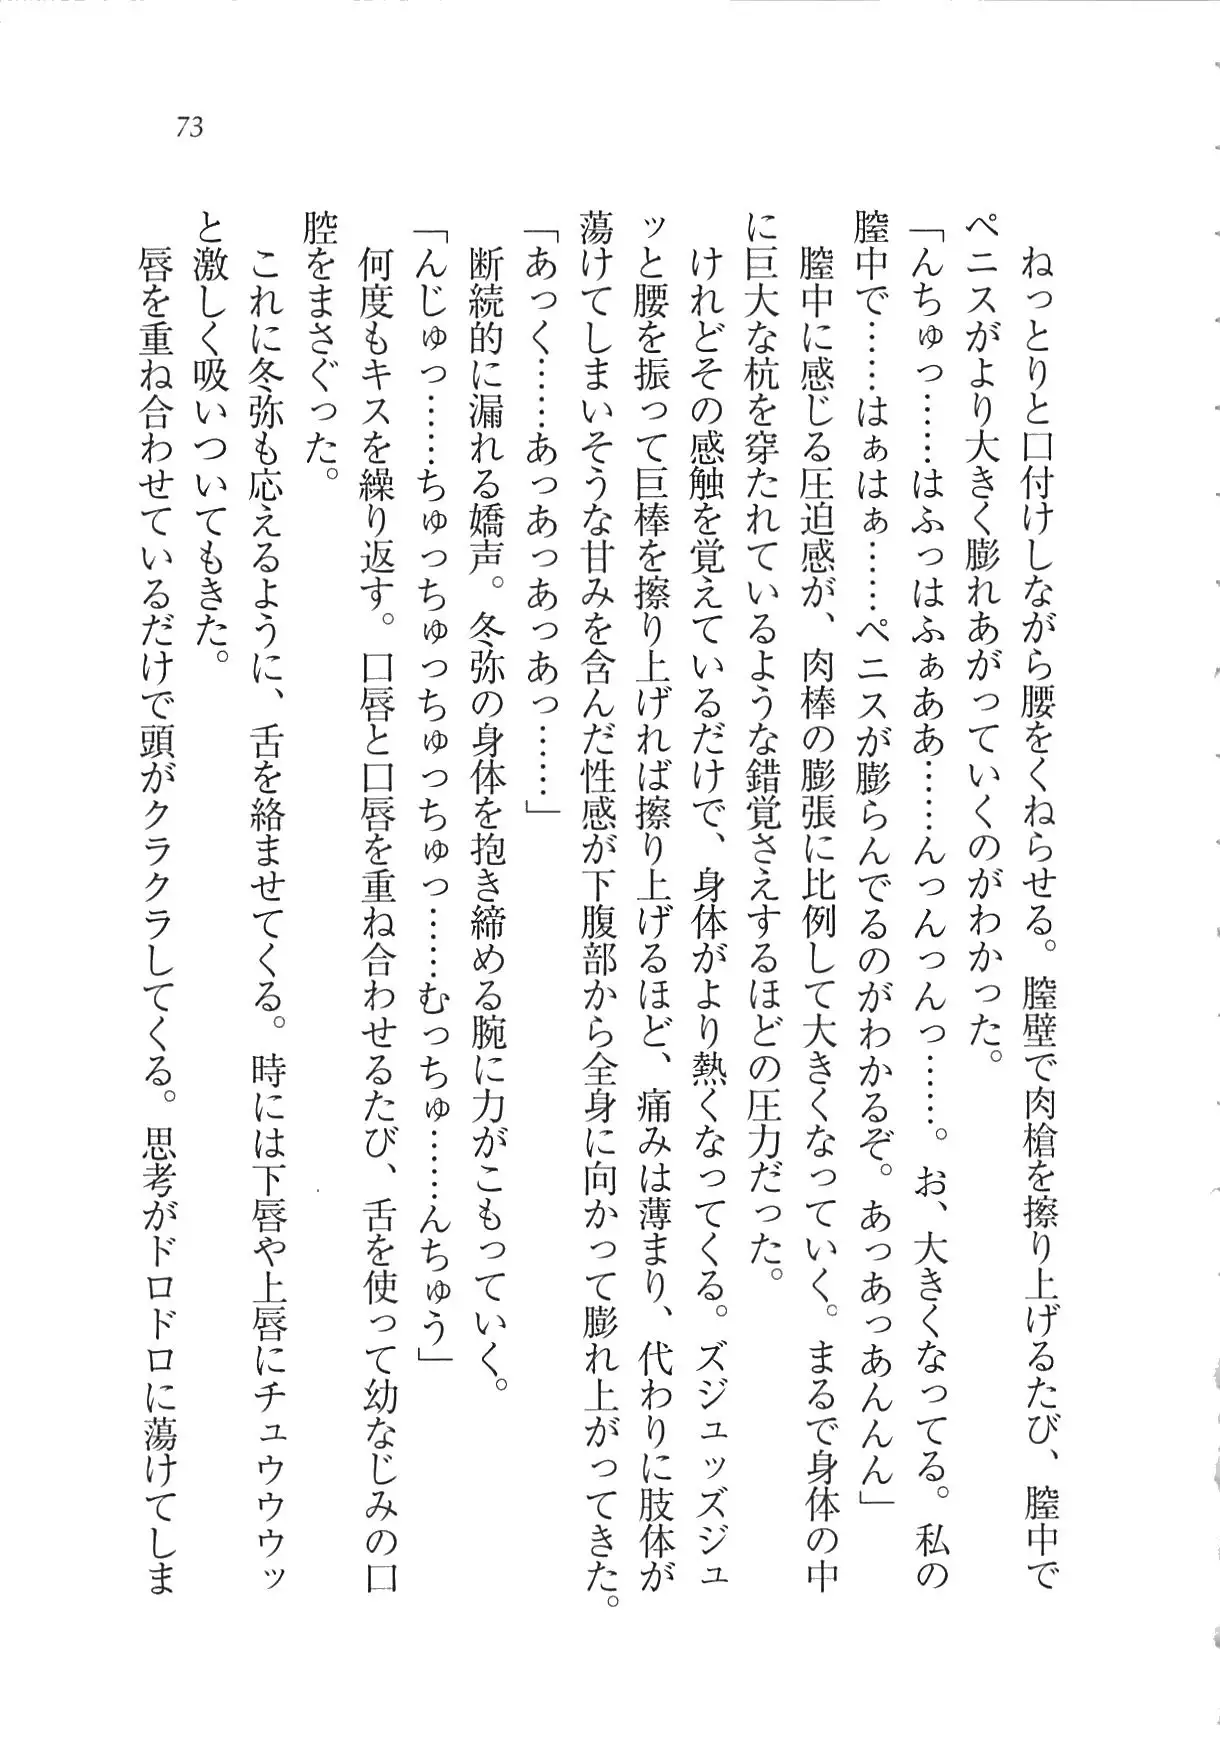 73
ねっとりと口付けしながら腰をくねらせる。膣壁で肉槍を擦り上げるたび、膣中で
ペニスがより大きく膨れあがっていくのがわかった。
「んちゅっ……はふっはふぁああ……んっんっんっ……。お、大きくなってる。私の
膣中で……はぁはぁ……ペニスが膨らんでるのがわかるぞ。あっあっあんんん」
膣中に感じる圧迫感が、肉棒の膨張に比例して大きくなっていく。まるで身体の中
に巨大な杭を穿たれているような錯覚さえするほどの圧力だった。
けれどその感触を覚えているだけで、身体がより熱くなってくる。ズジュッズジュ
ッと腰を振って巨棒を擦り上げれば擦り上げるほど、痛みは薄まり、代わりに肢体が
蕩けてしまいそうな甘みを含んだ性感が下腹部から全身に向かって膨れ上がってきた。
「あっく……あっあっあっあっ……」
断続的に漏れる嬌声。冬弥の身体を抱き締める腕に力がこもっていく。
「んじゅっ……ちゅっちゅっちゅっちゅっ……むっちゅ……んちゅう」
何度もキスを繰り返す。口唇と口唇を重ね合わせるたび、舌を使って幼なじみの口
腔をまさぐった。
これに冬弥も応えるように、舌を絡ませてくる。時には下唇や上唇にチュウウウッ
と激しく吸いついてもきた。
唇を重ね合わせているだけで頭がクラクラしてくる。思考がドロドロに蕩けてしま